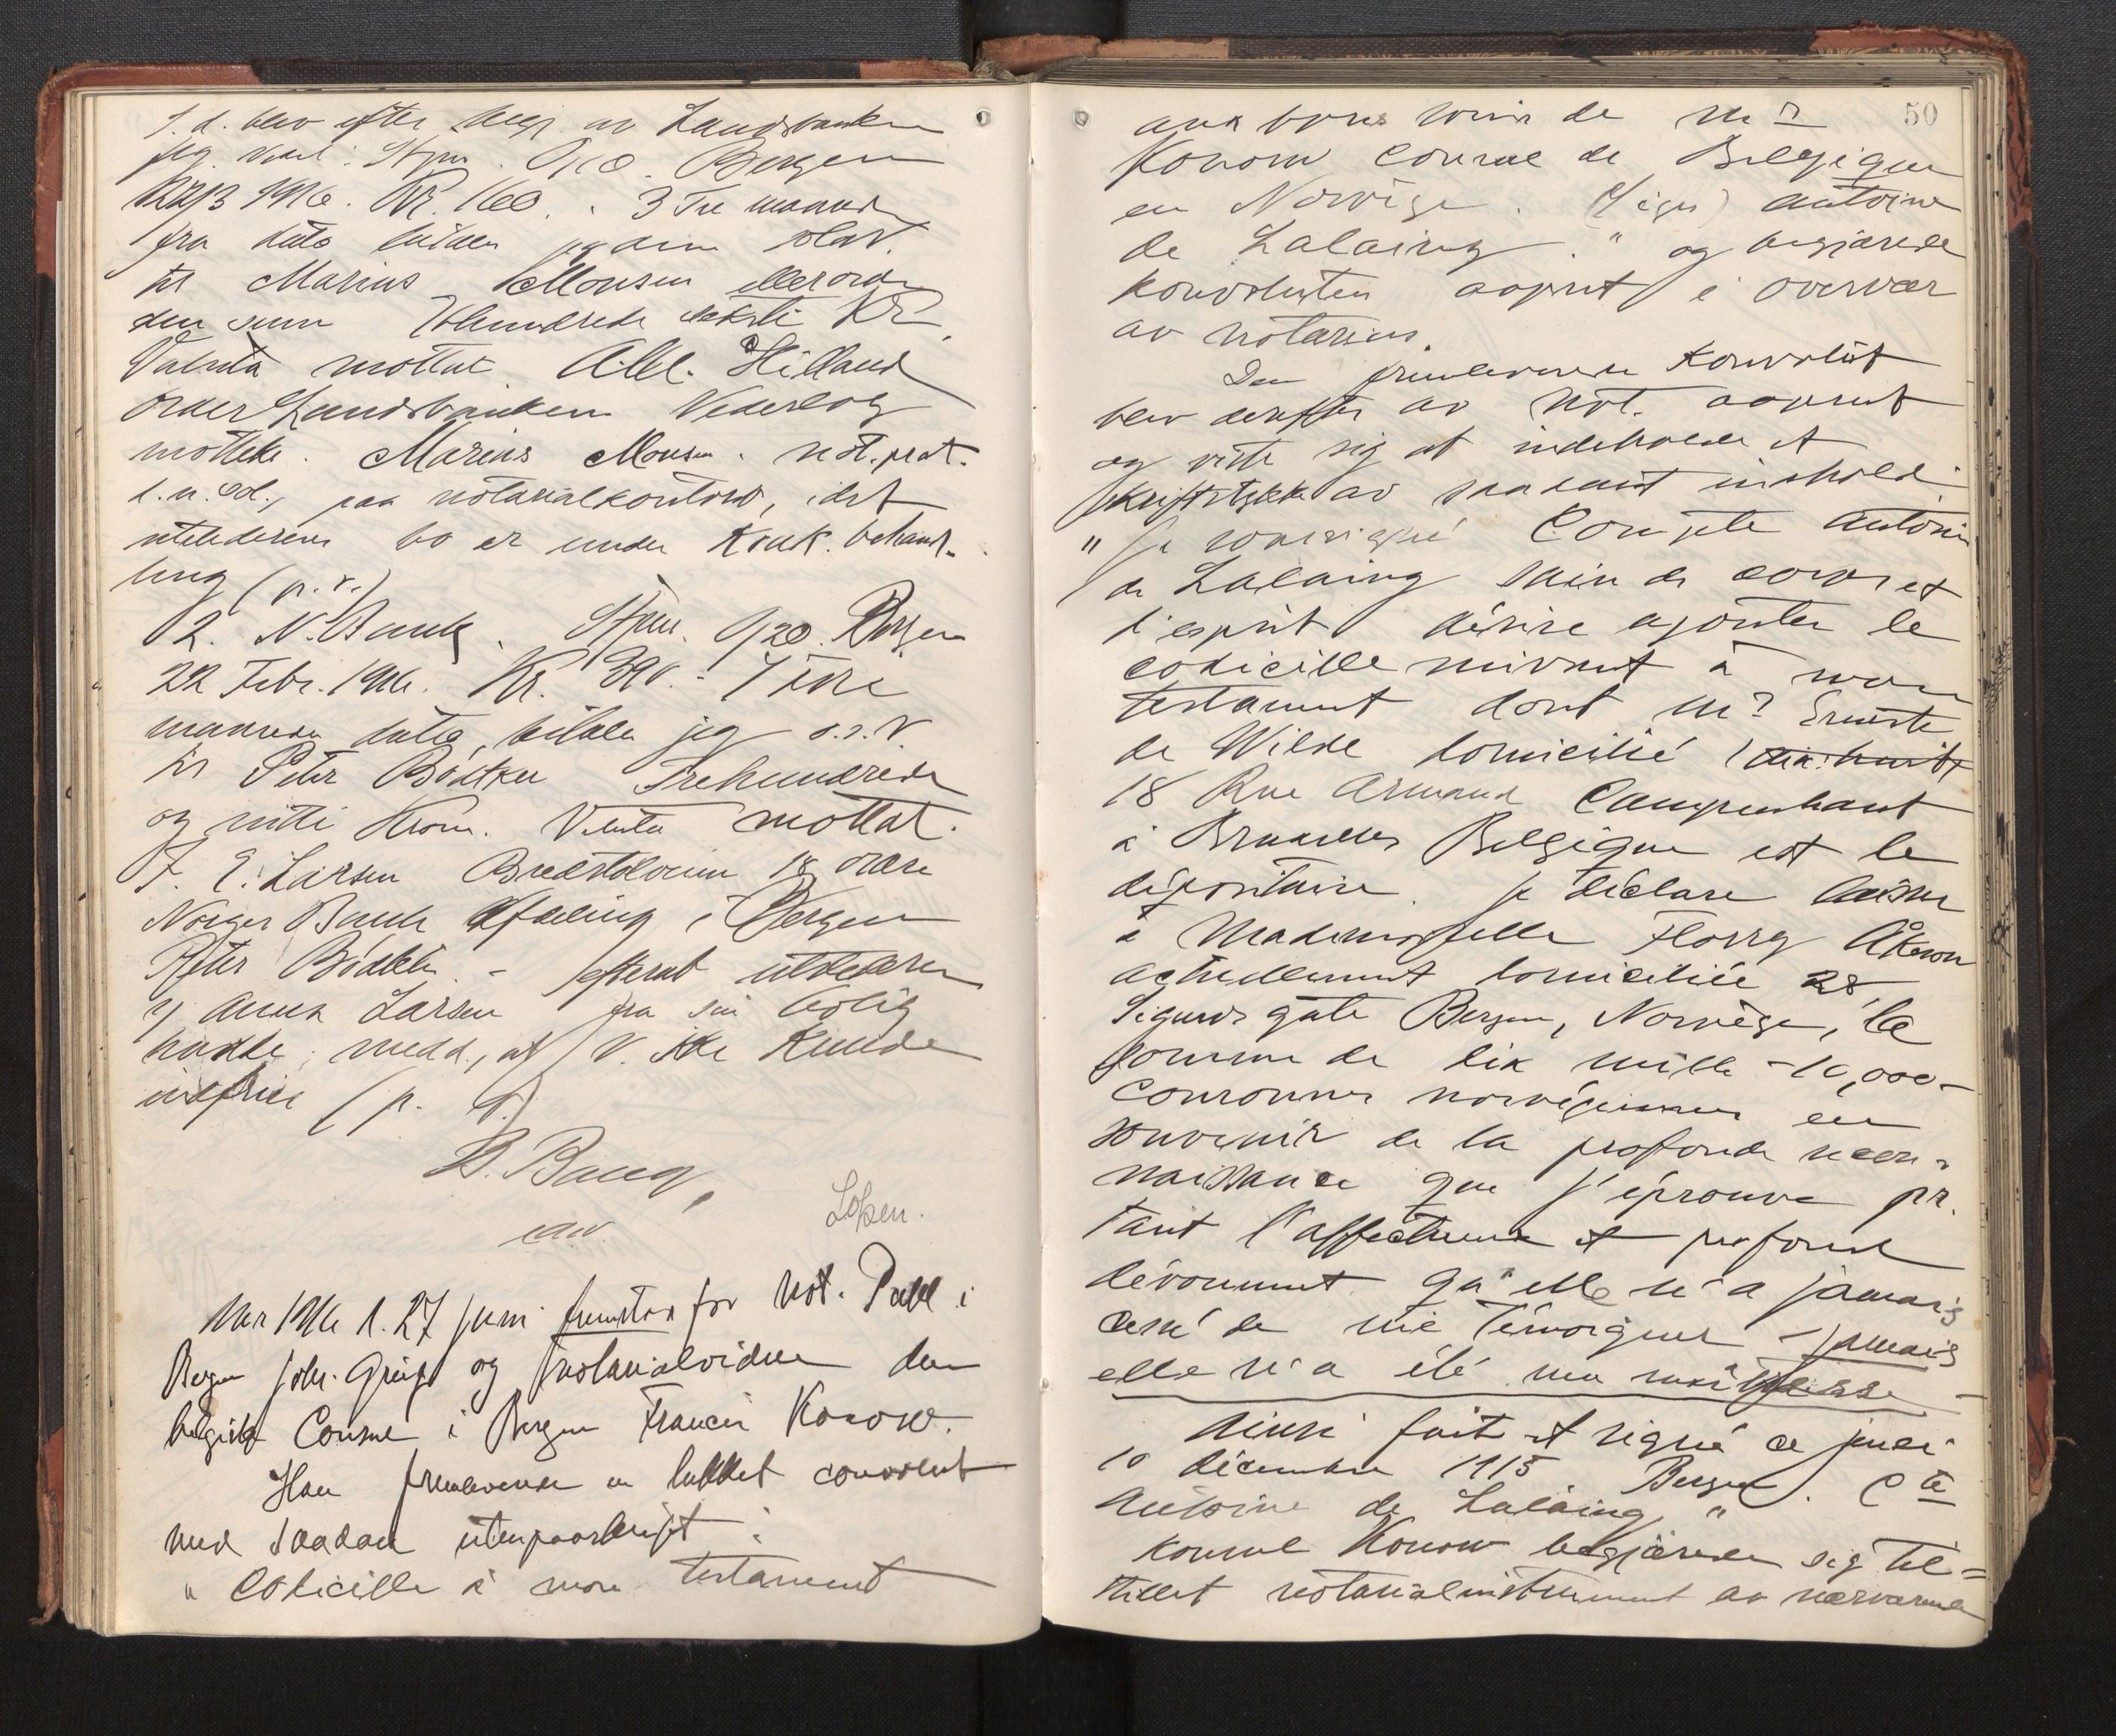 s. d. blev efter begj. av Landsbanken
Stpm. 0,10. Bergen
22/3 1916. Kr. 160. 3 Tre maaned
fra dato betaler jeg denne
til Marius Monsen eller ordre
den sum Ethundrede seksti Kr.
Valuta mottat. Hilland
Order Landsbanken Vederlag
mottat. Marius Monsen. not. prot.
paa notarialkontoret, idet
utstederens bo er under Konk. behand-
ling (p. v.)
2. N. Bank. Stpm. 0,20. Bergen
22 Febr. 1916. Kr. 390.- 4 Fire
maaneder dato, betaler jeg o.s.v.
til Peter Bödtker Trehundrede
og nitti Kron. Valuta mottat.
J. E. Larsen 18 ordre
Norges Bank Afdeling i Bergen
Peter Bödtker - utstederen
Anna Larsen fra sin bolig
hadde medd., at v. ikke kunde
indfries (p. v.)
B. Bang,
Lopsen.
Aar 1916 d. 27 juni fremstod for Not. Publ i
Bergen joh. Grieg og notarialvidne den
belgiske Consul i Bergen Francis Konow.
Han fremleverede en lukket convolut
med saadan utenpaaskrift:
"Codicille à mon testament
50
aux bons soins de Mr
Konow Consul de Belgique
en Norvège. (sign) Antoine
de Lalaing." og begjærede
konvoluten aapnet i overvær
av notarius.
Den fremleverede Konvolut
blev derefter av Not. aapnet
og viste sig at indeholde et
skriftstykke av saadant indhold:
"Je soussigné Compte Antoine
de Lalaing sain de corps et
d'esprit désire ajouter le
codicille suivant à mon
testament dont Mr Ernest
de Wilde domicilié (dix huit)
18 Rue Armand Campenhout
à Bruxelles Belgique est le
dépositaire. Je déclare laisser
à Mademoiselle Florry Åkeson
actuellement domiciliée 28
Sigurds gate Bergen, Norvège, la
somme de dix mille -10,000-
couronnes norvégiennes en
souvenir de la profonde recon-
naissance que j'éprouve pr.
tant l'affectueux et profond
dévoument qu'elle n'a jamais
cessé de me témoigner - jamais
elle n'a été ma maîtresse -
Ainsi fait et signé ce jeudi
10 décembre 1915 Bergen. Cte
Antoine de Lalaing."
Konsul Konow begjærede sig til-
stillet notarialinstrument av nærværende